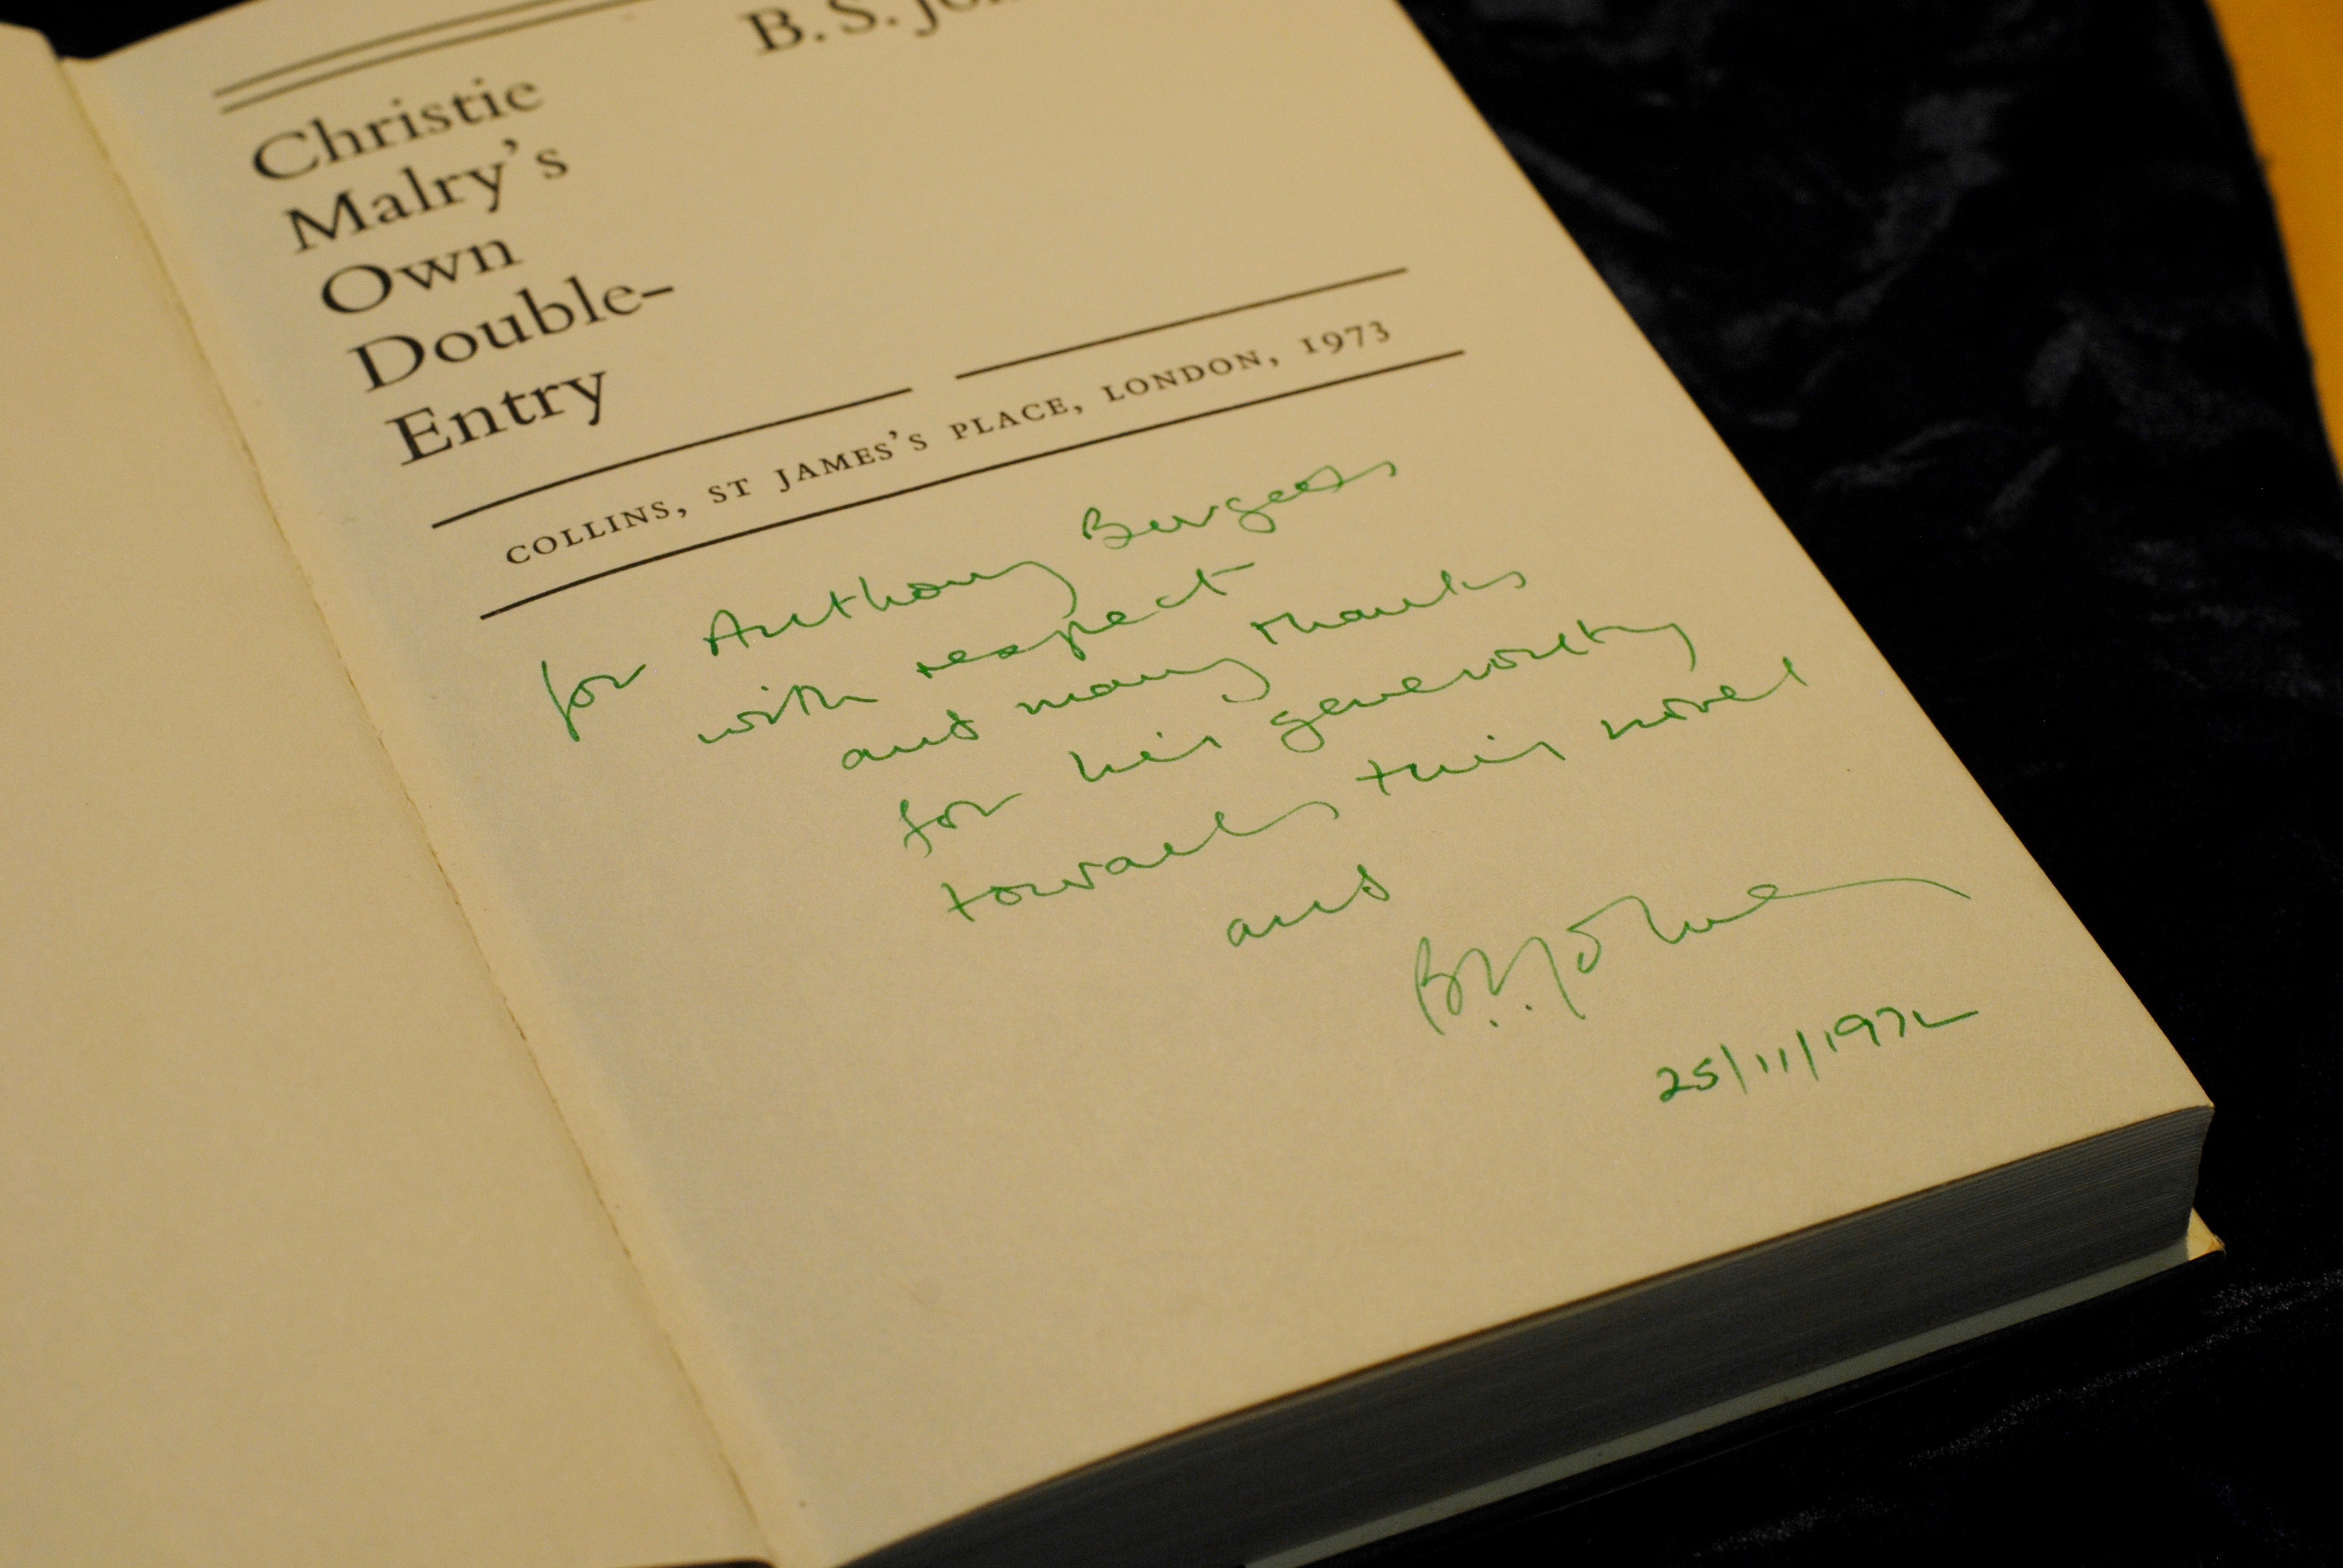 B. S. Jo
Christie
Malry's
Own
Double-
Entry
COLLINS, ST JAMES'S PLACE, LONDON, 1973
for Anthony Burgess
with respect
and many thanks
for his generosity
towards this novel
and
B.S. Johnson
25/11/1972